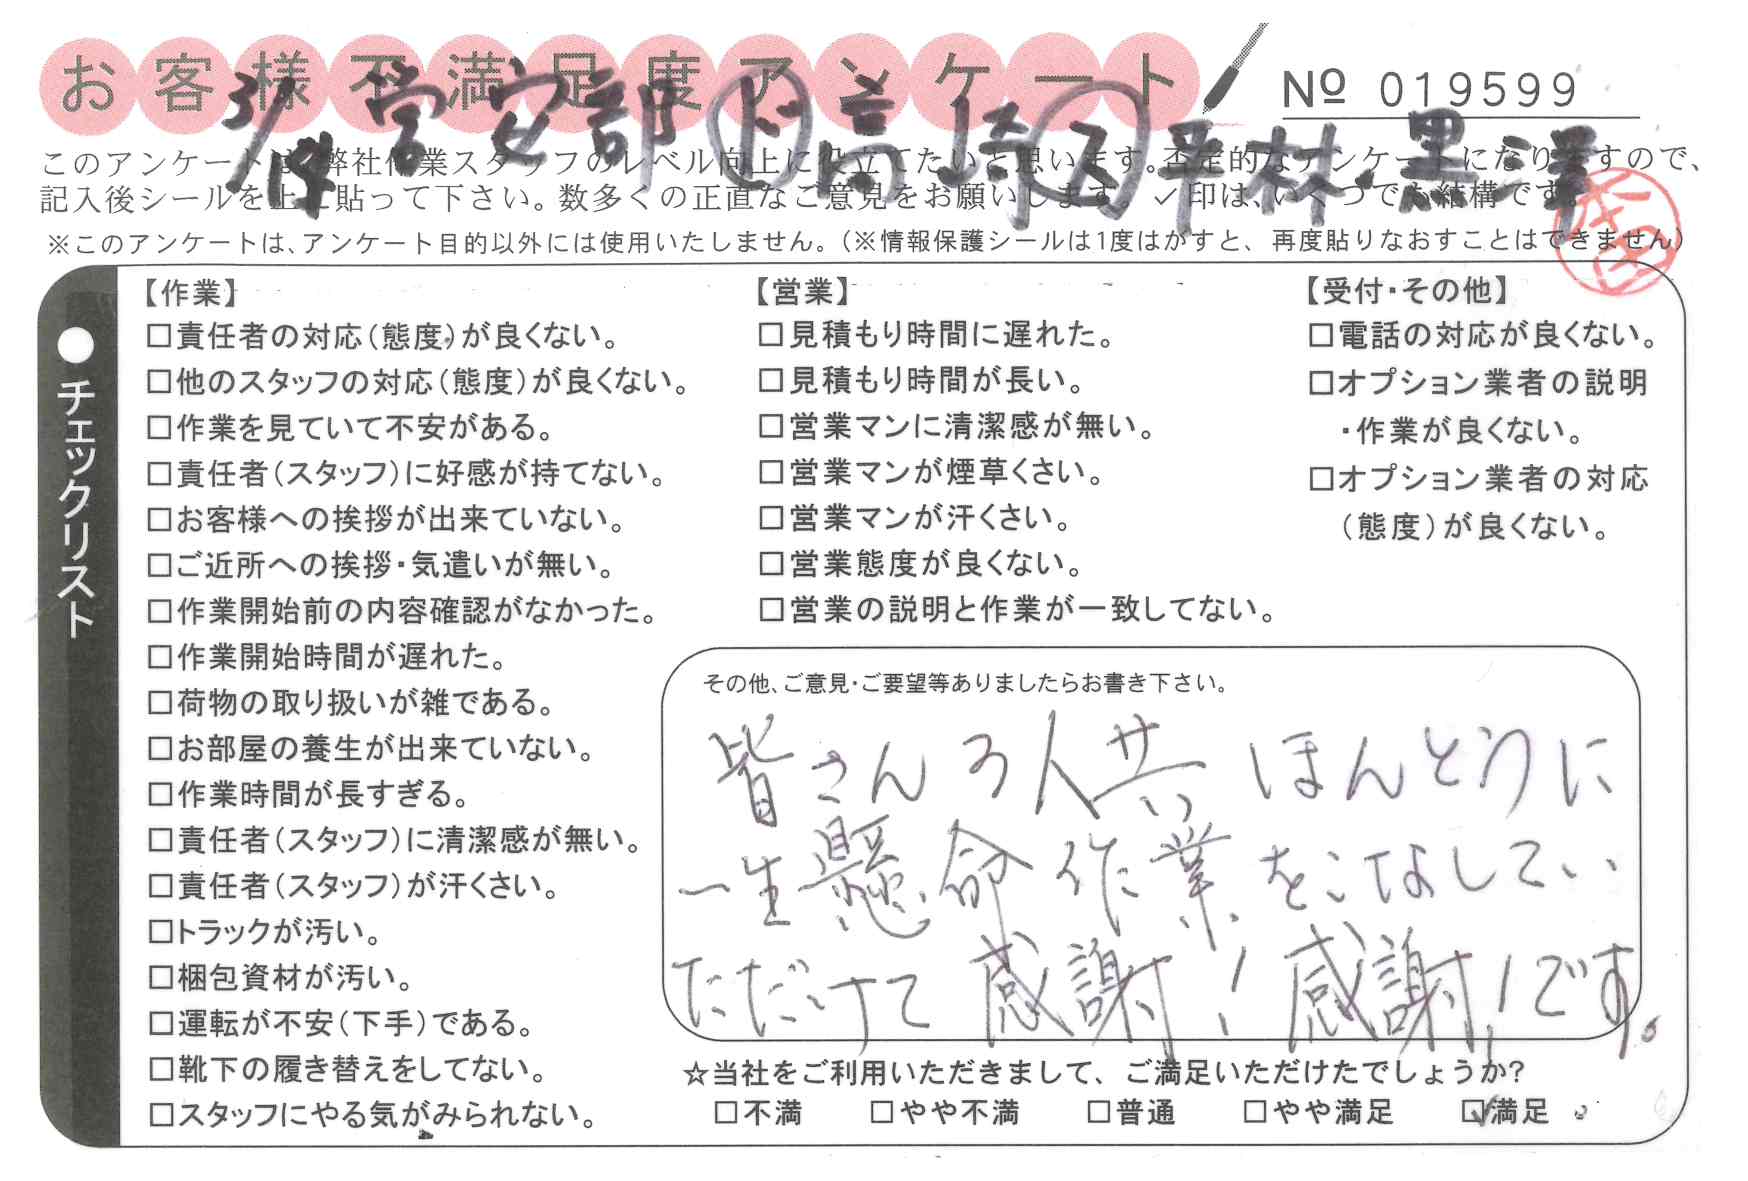 お客様不満足度アンケート
№ 019599
3/14 営 安部 ド 高崎 平林・黒澤
このアンケートは、弊社作業スタッフのレベル向上に役立てたいと思います。否定的なアンケートになりますので、
記入後シールを上に貼って下さい。数多くの正直なご意見をお願いします。✓印は、いくつでも結構です。
※このアンケートは、アンケート目的以外には使用いたしません。（※情報保護シールは1度はがすと、再度貼りなおすことはできません）
●チェックリスト
【作業】
□責任者の対応（態度）が良くない。
□他のスタッフの対応（態度）が良くない。
□作業を見ていて不安がある。
□責任者（スタッフ）に好感が持てない。
□お客様への挨拶が出来ていない。
□ご近所への挨拶・気遣いが無い。
□作業開始前の内容確認がなかった。
□作業開始時間が遅れた。
□荷物の取り扱いが雑である。
□お部屋の養生が出来ていない。
□作業時間が長すぎる。
□責任者（スタッフ）に清潔感が無い。
□責任者（スタッフ）が汗くさい。
□トラックが汚い。
□梱包資材が汚い。
□運転が不安（下手）である。
□靴下の履き替えをしてない。
□スタッフにやる気がみられない。
【営業】
□見積もり時間に遅れた。
□見積もり時間が長い。
□営業マンに清潔感が無い。
□営業マンが煙草くさい。
□営業マンが汗くさい。
□営業態度が良くない。
□営業の説明と作業が一致してない。
【受付・その他】
□電話の対応が良くない。
□オプション業者の説明
・作業が良くない。
□オプション業者の対応
（態度）が良くない。
その他、ご意見・ご要望等ありましたらお書き下さい。
皆さん3人共 ほんとうに
一生懸命作業をこなしてい
ただけて感謝！感謝！です。
☆当社をご利用いただきまして、ご満足いただけたでしょうか?
□不満 □やや不満 □普通 □やや満足 ☑満足